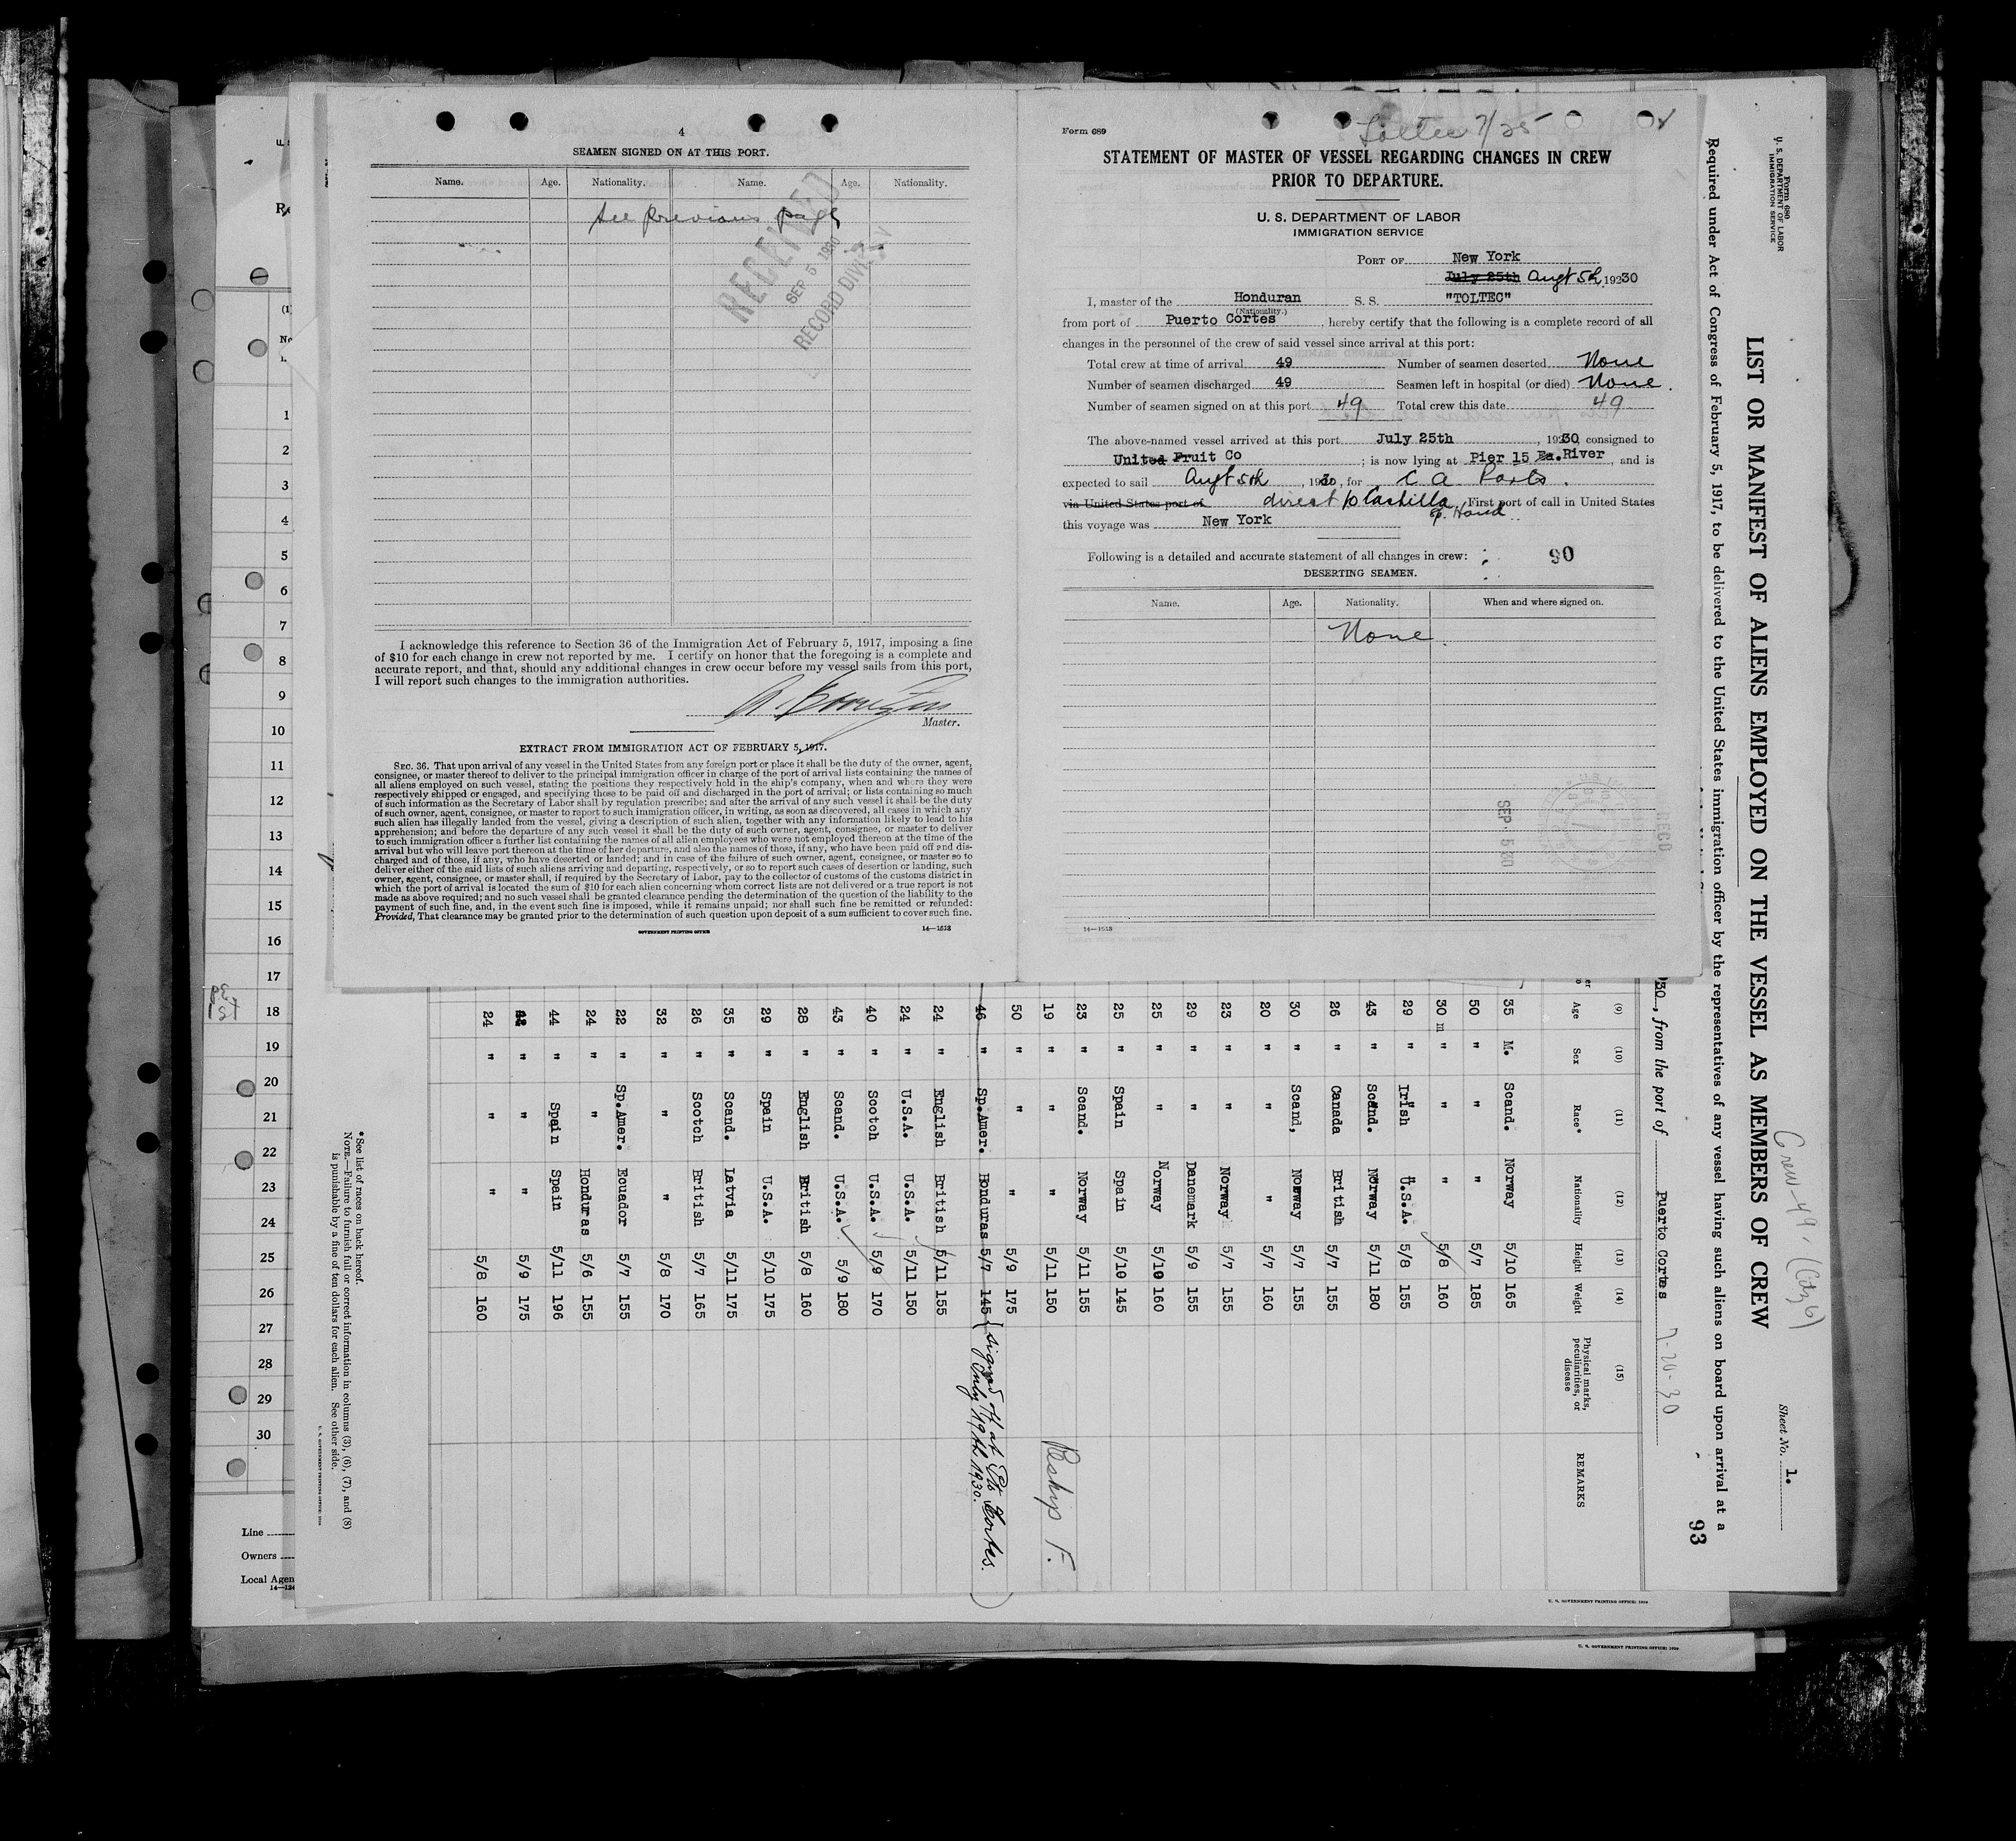 4
SEAMEN SIGNED ON AT THIS PORT.
Name. Age. Nationality. Name. Age. Nationality.
See previous page
RECEIVED
SEP 5 1930
RECORD DIVISION
I acknowledge this reference to Section 36 of the Immigration Act of February 5, 1917, imposing a fine
of $10 for each change in crew not reported by me. I certify on honor that the foregoing is a complete and
accurate report, and that, should any additional changes in crew occur before my vessel sails from this port,
I will report such changes to the immigration authorities.
Master.
EXTRACT FROM IMMIGRATION ACT OF FEBRUARY 5, 1917.
SEC. 36. That upon arrival of any vessel in the United States from any foreign port or place it shall be the duty of the owner, agent,
consignee, or master thereof to deliver to the principal immigration officer in charge of the port of arrival lists containing the names of
all aliens employed on such vessel, stating the positions they respectively hold in the ship's company, when and where they were
respectively shipped or engaged, and specifying those to be paid off and discharged in the port of arrival; or lists containing so much
of such information as the Secretary of Labor shall by regulation prescribe; and after the arrival of any such vessel it shall be the duty
of such owner, agent, consignee, or master to report to such immigration officer, in writing, as soon as discovered, all cases in which any
such alien has illegally landed from the vessel, giving a description of such alien, together with any information likely to lead to his
apprehension; and before the departure of any such vessel it shall be the duty of such owner, agent, consignee, or master to deliver
to such immigration officer a further list containing the names of all alien employees who were not employed thereon at the time of the
arrival but who will leave port thereon at the time of her departure, and also the names of those, if any, who have been paid off and dis-
charged and of those, if any, who have deserted or landed; and in case of the failure of such owner, agent, consignee, or master so to
deliver either of the said lists of such aliens arriving and departing, respectively, or so to report such cases of desertion or landing, such
owner, agent, consignee, or master shall, if required by the Secretary of Labor, pay to the collector of customs of the customs district in
which the port of arrival is located the sum of $10 for each alien concerning whom correct lists are not delivered or a true report is not
made as above required; and no such vessel shall be granted clearance pending the determination of the question of the liability to the
payment of such fine, and, in the event such fine is imposed, while it remains unpaid; nor shall such fine be remitted or refunded:
Provided, That clearance may be granted prior to the determination of such question upon deposit of a sum sufficient to cover such fine.
GOVERNMENT PRINTING OFFICE 14—1513
Form 689
Toltec 7/25
STATEMENT OF MASTER OF VESSEL REGARDING CHANGES IN CREW
PRIOR TO DEPARTURE.
U. S. DEPARTMENT OF LABOR
IMMIGRATION SERVICE
PORT OF New York
July 25th Augt 5th, 1930
I, master of the Honduran S. S. "TOLTEC"
(Nationality.)
from port of Puerto Cortes, hereby certify that the following is a complete record of all
changes in the personnel of the crew of said vessel since arrival at this port:
Total crew at time of arrival 49 Number of seamen deserted None
Number of seamen discharged 49 Seamen left in hospital (or died) None.
Number of seamen signed on at this port 49 Total crew this date 49
The above-named vessel arrived at this port July 25th, 1930, consigned to
United Fruit Co; is now lying at Pier 15 Ea. River, and is
expected to sail Augt 5th, 1930, for C A Ports.
via United States port of direct to Castilla, First port of call in United States
Sp. Hond
this voyage was New York
Following is a detailed and accurate statement of all changes in crew: 90
DESERTING SEAMEN.
Name. Age. Nationality. When and where signed on.
None
SEP 5 30
RECD
14—1513
Form 680
U. S. DEPARTMENT OF LABOR
IMMIGRATION SERVICE
Crew-49. (Citz 6)
Sheet No. 1.
LIST OR MANIFEST OF ALIENS EMPLOYED ON THE VESSEL AS MEMBERS OF CREW
Required under Act of Congress of February 5, 1917, to be delivered to the United States immigration officer by the representatives of any vessel having such aliens on board upon arrival at a
93
30, from the port of Puerto Cortes 7-20-30
(9) (10) (11) (12) (13) (14) (15)
Age Sex Race* Nationality Height Weight Physical marks, peculiarities, or disease REMARKS
35 M. Scand. Norway 5/10 165
50 " " " 5/7 185
30 m " " " 5/8 160
29 " Irish U.S.A. 5/8 155
43 " Scand. Norway 5/11 180
26 " Canada British 5/7 155
30 " Scand, Norway 5/7 155
20 " " " 5/7 160
23 " " Norway 5/7 155
29 " " Danemark 5/9 155
25 " " Norway 5/10 160
25 " Spain Spain 5/10 145
23 " Scand. Norway 5/11 155
19 " " " 5/11 150 Reship F.
50 " " " 5/9 175
46 " Sp.Amer. Honduras 5/7 145 {signed off at Pto Cortes. July 19th 1930.
24 " English British 5/11 155
24 " U.S.A. U.S.A. 5/11 150
40 " Scotch U.S.A. 5/9 170
43 " Scand. U.S.A. 5/9 180
28 " English British 5/8 160
29 " Spain U.S.A. 5/10 175
35 " Scand. Latvia 5/11 175
26 " Scotch British 5/7 165
32 " " " 5/8 170
22 " Sp.Amer. Ecuador 5/7 155
24 " " Honduras 5/6 155
44 " Spain Spain 5/11 196
" " " 5/9 175
24 " " " 5/8 160
*See list of races on back hereof.
NOTE.—Failure to furnish full or correct information in columns (3), (6), (7), and (8)
is punishable by a fine of ten dollars for each alien. See other side.
U. S. GOVERNMENT PRINTING OFFICE: 1929
U. S. GOVERNMENT PRINTING OFFICE: 1929
(1)
1
2
3
4
5
6
7
8
9
10
11
12
13
14
15
16
17
18
19
20
21
22
23
24
25
26
27
28
29
30
Line
Owners
Local Agen
14—124